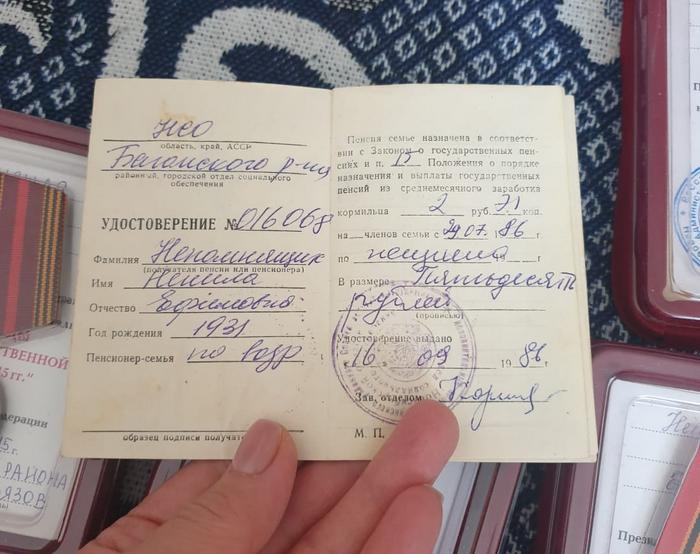 НСО
область, край, АССР
Баганского р-на
районный, городской отдел социального
обеспечения
УДОСТОВЕРЕНИЕ № 016068
Фамилия Непомнящих
(получателя пенсии или пенсионера)
Имя Ненила
Отчество Ефимовна
Год рождения 1931
Пенсионер-семья по возр
образец подписи получат
Пенсия семье назначена в соответст-
вии с Законом о государственных пен-
сиях и п. 15 Положения о порядке
назначения и выплаты государственных
пенсий из среднемесячного заработка
кормильца 2 руб. 71 коп.
на членов семьи с 29 07. 86 г.
по г
В размере Пятьдесят
рублей
(прописью)
Удостоверение выдано
16 09 1986 г
Зав. отделом
М. П.
СТВЕННОЙ
5 гг."
РАЙОНА
ЯЗОВ